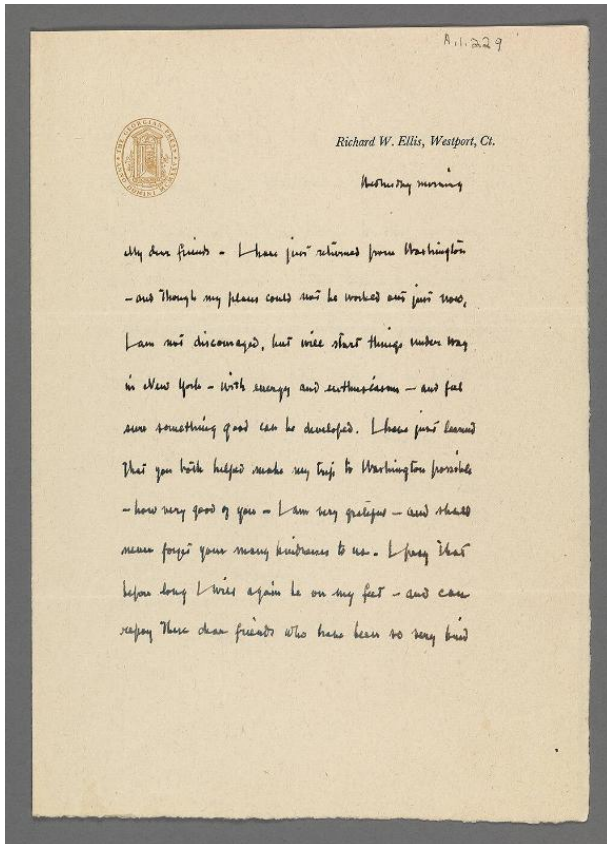 A.1.229
THE GEORGIAN PRESS
ANNO DOMINI MCMXXV
Richard W. Ellis, Westport, Ct.
Wednesday morning
My dear friends - I have just returned from Washington
- and though my plans could not be worked out just now,
I am not discouraged, but will start things under way
in New York - with energy and enthusiasm - and feel
sure something good can be developed. I have just learned
that you both helped make my trip to Washington possible
- how very good of you - I am very grateful - and shall
never forget your many kindnesses to us. I pray that
before long I will again be on my feet - and can
repay these dear friends who have been so very kind